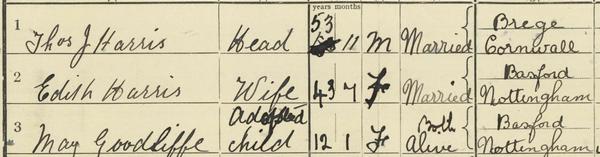 years months
1 Thos J Harris Head 53 11 M Married Brege Cornwall
2 Edith Harris Wife 43 7 F Married Basford Nottingham
3 May Goodliffe Adopted child 12 1 F Both Alive Basford Nottingham